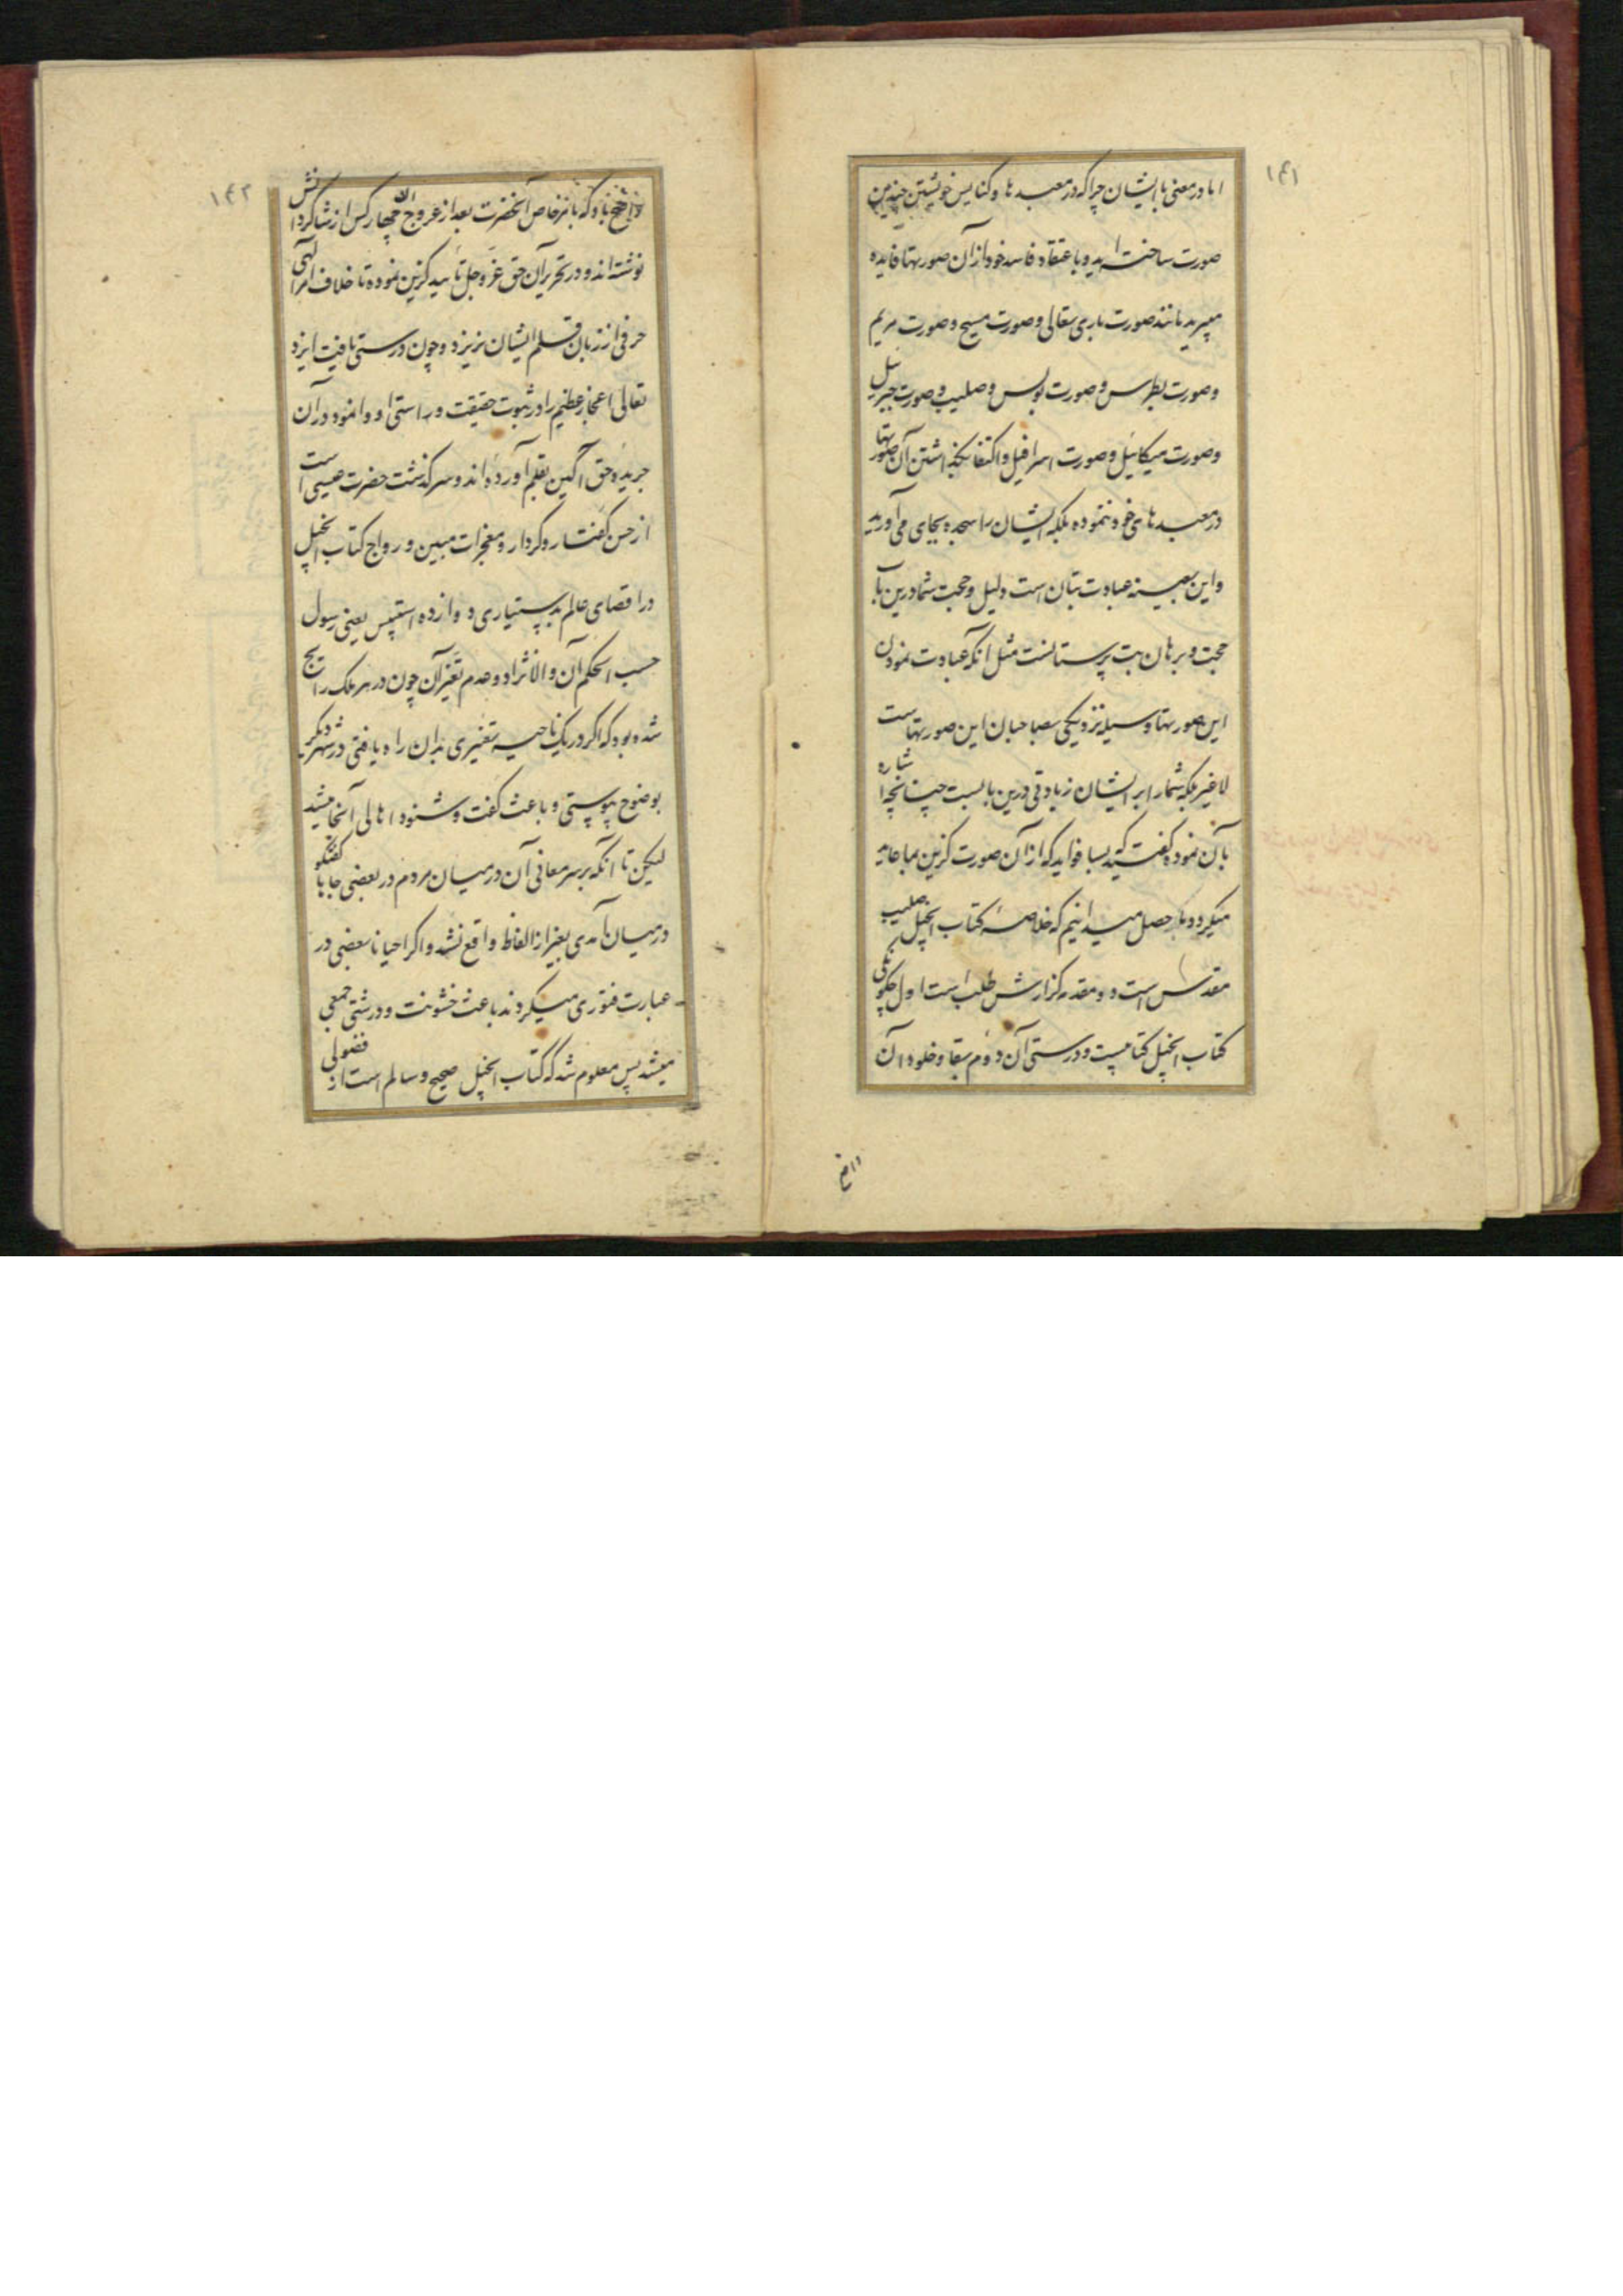 ۱۴۱
اما در معنی با ایشان چرا که در معبدها و کنایس خویشتن چندین
صورت ساخته اید و باعتقاد فاسد خود از آن صورتها فایده
میبرید مانند صورت باری تعالی و صورت مسیح و صورت مریم
و صورت پطرس و صورت پولس و صلیب و صورت جبرئیل
و صورت میکائیل و صورت اسرافیل و اکتفا بگذاشتن آن صورتها
در معبدهای خود ننموده بلکه ایشان را سجده بجای می آورید
و این بعینه عبادت بتان است دلیل و حجت شما درین باب
حجت و برهان بت پرستانست مثل آنکه عبادت نمودن
این صورتها وسیله نزدیکی بصاحبان این صورتهاست
لا غیر بلکه شما را بر ایشان زیادتی درین بابست چنانچه اشاره
بآن نموده گفتید بسا فواید که از آن صورت گزین بما عاید
میگردد ما حصل میدانیم که خلاصه کتاب انجیل صلیب
مقدس است دو مقدمه گزارش طلب است اول چگونگی
کتاب انجیل کتابیست و درستی آن دوم بقا و خلود آن
۱۴۲
واضح باد که بامر خاص آنحضرت بعد از عروج او چهار کس از شاگردانش
نوشته اند و در تحریر آن حق عز و جل تأیید گزین نموده تا خلاف امر الهی
حرفی از زبان قلم ایشان نریزد و چون درستی یافت ایزد
تعالی اعجاز عظیم را در ثبوت حقیقت و راستی او وانمود در آن
جریده حق آگین بقلم آورده اند و سرگذشت حضرت عیسی است
از حسن گفتار و کردار و معجزات مبین و رواج کتاب انجیل
در اقصای عالم بدستیاری دوازده استپس یعنی رسول
حسب الحکم آن والانژاد و عدم تغیر آن چون در هر ملک رایج
شده بود که اگر در یک ناحیه تغیری بدان راه یافتی در شهر دیگر
بوضوح پیوستی و باعث گفت و شنود اهالی آنجا میشد
لیکن تا آنکه بر سر معانی آن در میان مردم در بعضی جاها گفتگو
در میان آمدی بغیر از الفاظ واقع نشد و اگر احیانا بعضی در
عبارت فتوری میکردند باعث خشونت و درشتی جمعی
میشد پس معلوم شد که کتاب انجیل صحیح و سالم است از فضولی